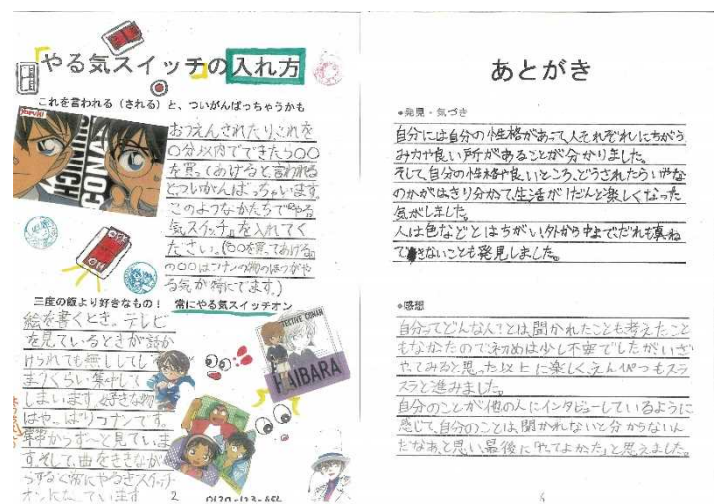 やる気スイッチの入れ方
これを言われる(される)と、ついがんばっちゃうかも
おうえんされたりこれを
○分以内でできたら○○
を買ってあげると言われる
とついがんばっちゃいます
このようなかたちで『やる
気スイッチ』を入れてく
ださい。(○○を買ってあげる
の○○はコナンの物のほうがや
る気が特にでます。)
三度の飯より好きなもの! 常にやる気スイッチオン
絵を書くとき。テレビ
を見ているときが話か
けられても無ししてし
まうくらい集中して
しまいます。好きな物
はやっぱりコナンです。
ず〜と見ていま
す。そして、曲をききながら
CONAN
DETECTIVE CONAN
HAIBARA
2
あとがき
●発見・気づき
自分には自分の性格があって人それぞれにちがう
み力や良い所があることが分かりました。
そして、自分の性格や良いところ、どうされたらいやな
のかがはっきり分かって、生活がいだんと楽しくなった
気がしました。
人は色などとはちがい外から中までだれも真ね
できないことも発見しました。
●感想
自分ってどんな人?とは聞かれたことも考えたこと
もなかったので初めは少し不安でしたがいざ
やってみると思った以上に楽しく、えんぴつもスラ
スラと進みました。
自分のことが他の人にインタビューしているように
感じて、自分のことは聞かれないと分からないん
だなあと思い最後に「やってよかった」と思えました。